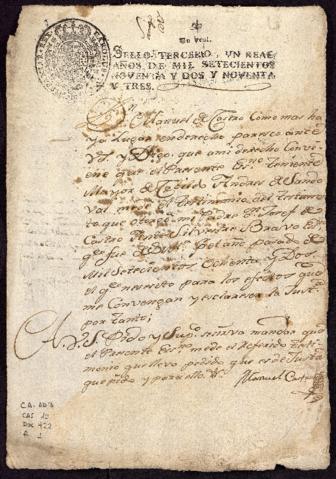 Un real.
SELLO TERCERO, UN REAL,
AÑOS DE MIL SETECIENTOS
NOVENTA Y DOS Y NOVENTA
Y TRES.
Manuel de Castro Como mas ha
ya lugar en derecho paresco ante
Vs. y Digo, que ami derecho Convi
ene que el Presente Essno teniente
Mayor de Cabildo Andres de Sando
val, me de testimonio del testamen
to que otorgó mi Padre Dn Josef de
Castro Ante Silvestre Bravo Essno
que fue de el año pasado de
Mil Setecientos Ochenta y Dos
el qe necesito para los efectos que
me Convengan y esclarecer la Justa
por tanto;
A. V. S. Pido y Supco se sirva mandar que
el Presente Essno me de el referido testi
monio que llevo pedido que es de Justa
que pido y para ello &a
Manuel Castro
CA-AD3
CAS 19
DOC 422
F. 1